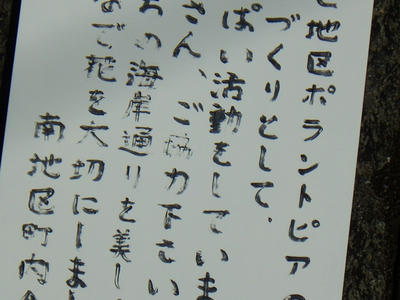 地区ボラントピア
づくりとして、
ぱい活動をしていま
さん、ご協力下さい
の海岸通りを美し
で花を大切にしまし
南地区町内